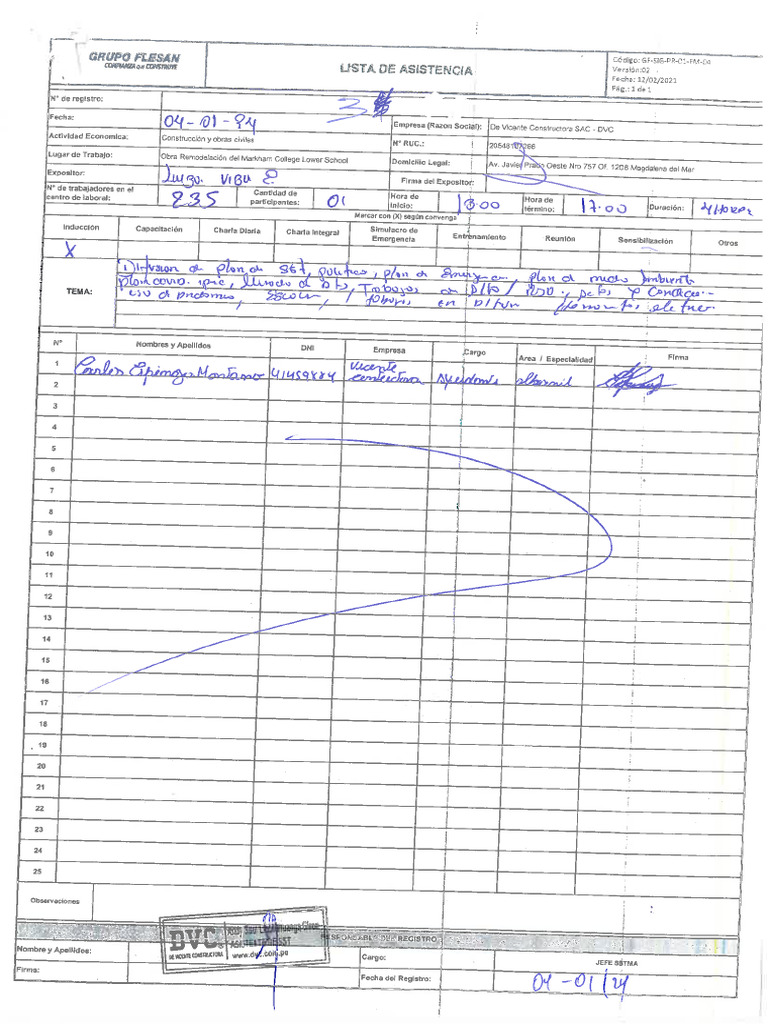 GRUPO FLESAN
CONFIANZA QUE CONSTRUYE
LISTA DE ASISTENCIA
Código: GF-SIG-PR-01-FM-04
Versión:02
Fecha: 12/02/2021
Pág.: 1 de 1
N° de registro: 3
Fecha: 04-01-24
Empresa (Razon Social): De Vicente Constructora SAC - DVC
Actividad Economica: Construcción y obras civiles
N° RUC.:
Lugar de Trabajo: Obra Remodelación del Markham College Lower School
Domicilio Legal: Av. Javier Prado Oeste Nro 757 Of. 1208 Magdalena del Mar
Expositor:
Firma del Expositor:
N° de trabajadores en el centro de laboral: 235
Cantidad de participantes: 01
Hora de inicio: 13:00
Hora de término: 17:00
Duración:
Marcar con (X) según convenga
Inducción Capacitación Charla Diaria Charla Integral Simulacro de Emergencia Entrenamiento Reunión Sensibilización Otros
X
TEMA:
Difusión de plan de SST, politicas, plan de Emergencia, plan de medio ambiente
plan covid
N° Nombres y Apellidos DNI Empresa Cargo Area / Especialidad Firma
1 Carlos Espinoza Montano 41459884 Vicente
2
3
4
5
6
7
8
9
10
11
12
13
14
15
16
17
18
19
20
21
22
23
24
25
Observaciones
RESPONSABLE DEL REGISTRO
DVC
DE VICENTE CONSTRUCTORA
www.dvc.com.pe
Nombre y Apellidos:
Cargo: JEFE SSTMA
Firma:
Fecha del Registro: 04-01/24